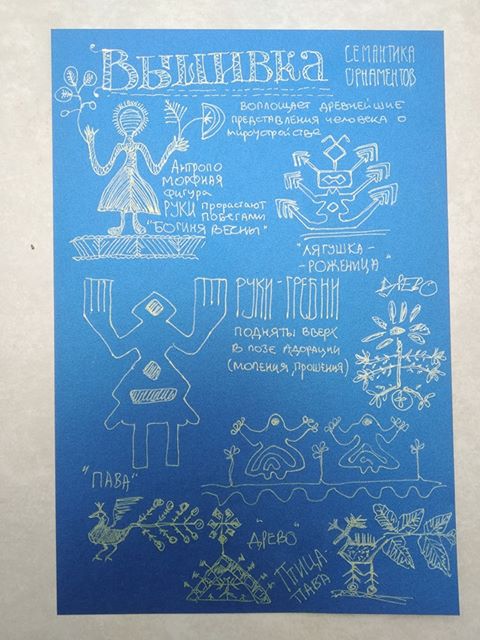 Вышивка
СЕМАНТИКА
ОРНАМЕНТОВ
ВОПЛОЩАЕТ ДРЕВНЕЙШИЕ
ПРЕДСТАВЛЕНИЯ ЧЕЛОВЕКА О
МИРОУСТРОЙСТВЕ
АНТРОПО
МОРФНАЯ
ФИГУРА
РУКИ ПРОРАСТАЮТ
ПОБЕГАМИ
"БОГИНЯ ВЕСНЫ"
"ЛЯГУШКА-
-РОЖЕНИЦА"
РУКИ-ГРЕБНИ
ПОДНЯТЫ ВВЕРХ
В ПОЗЕ АДОРАЦИИ
(МОЛЕНИЯ, ПРОШЕНИЯ)
ДРЕВО
"ПАВА"
"ДРЕВО"
ПТИЦА-
ПАВА